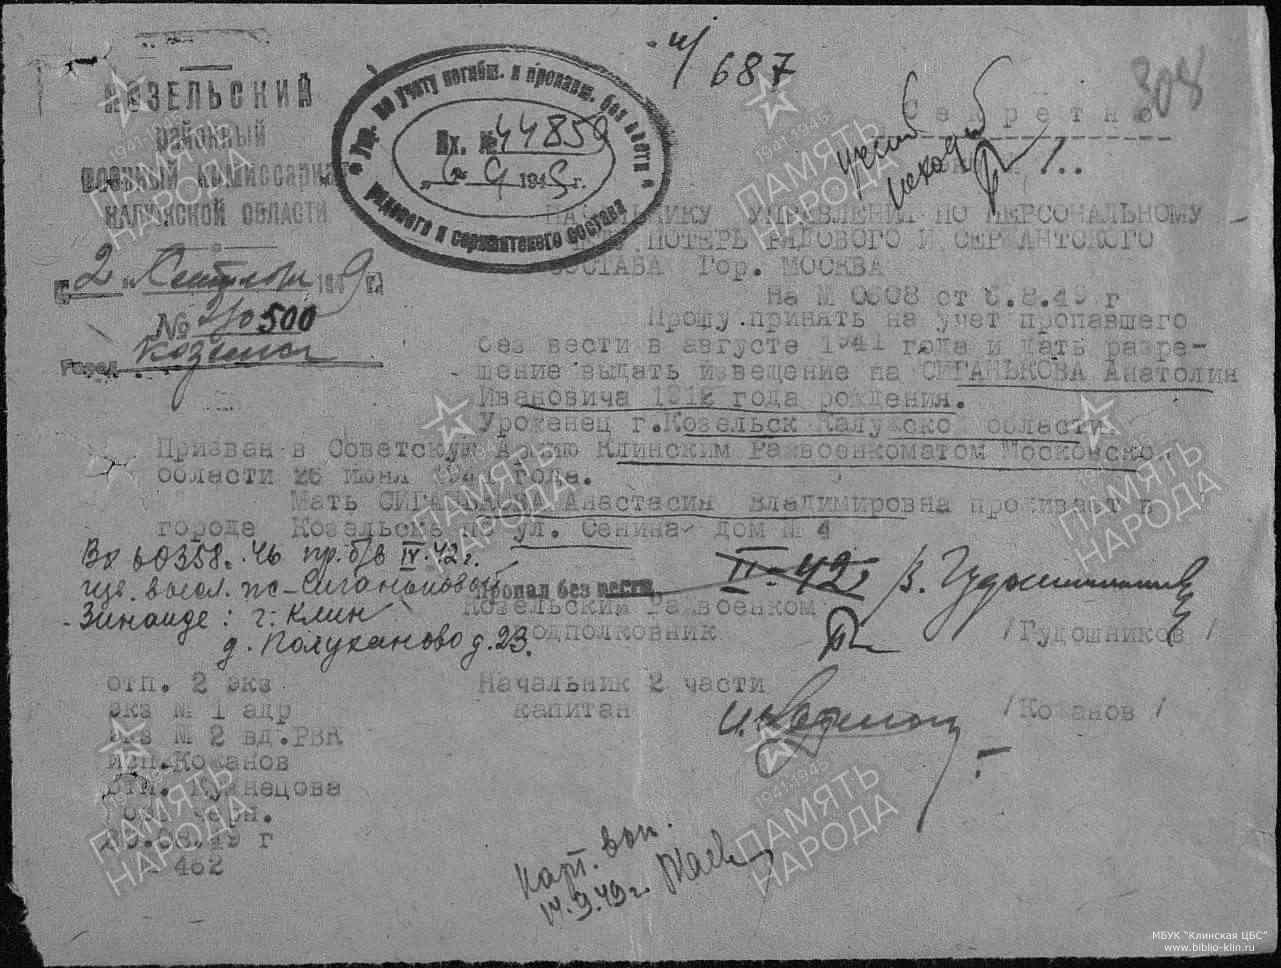 КОЗЕЛЬСКИЙ
РАЙОННЫЙ
ВОЕННЫЙ КОМИССАРИАТ
КАЛУЖСКОЙ ОБЛАСТИ
"2" Сентября 1949 г.
№ 2/0500
Город Козельск
Упр. по учету погибш. и пропавш. без вести
Вх. № 44859
"6" 9 1949 г.
рядового и сержантского состава
н/687
308
Секретно
1..
НАЧАЛЬНИКУ УПРАВЛЕНИЯ ПО ПЕРСОНАЛЬНОМУ
ПОТЕРЬ РЯДОВОГО И СЕРЖАНТСКОГО
СОСТАВА Гор. МОСКВА
На № 0608 от 6.8.49 г
Прошу принять на учет пропавшего
без вести в августе 1941 года и дать разре-
шение выдать извещение на СИГАНЬКОВА Анатолия
Ивановича 1912 года рождения.
Уроженец г.Козельск Калужской области
Призван в Советскую Армию Клинским Райвоенкоматом Московской
области 26 июня 1941 года.
Мать СИГАНЬКОВА Анастасия Владимировна проживает в
городе Козельске по ул. Сенина дом № 4
Вх 60358. 46 пр. б/в IV.42 г.
изв. высл. по - Сиганьковой
Зинаиде: г. Клин
д. Полуханово д. 23.
Пропал без вести,
II-42 г.
Козельским Райвоенком
подполковник /Гудошников/
Начальник 2 части
капитан /Кожанов/
отп. 2 экз
экз № 1 адр
экз № 2 вд.РВК
исп.Кожанов
отп. Кузнецова
30.08.49 г
462
Карт. вып.
14.9.49 г.
1941-1945
ПАМЯТЬ
НАРОДА
МБУК "Клинская ЦБС"
www.biblio-klin.ru